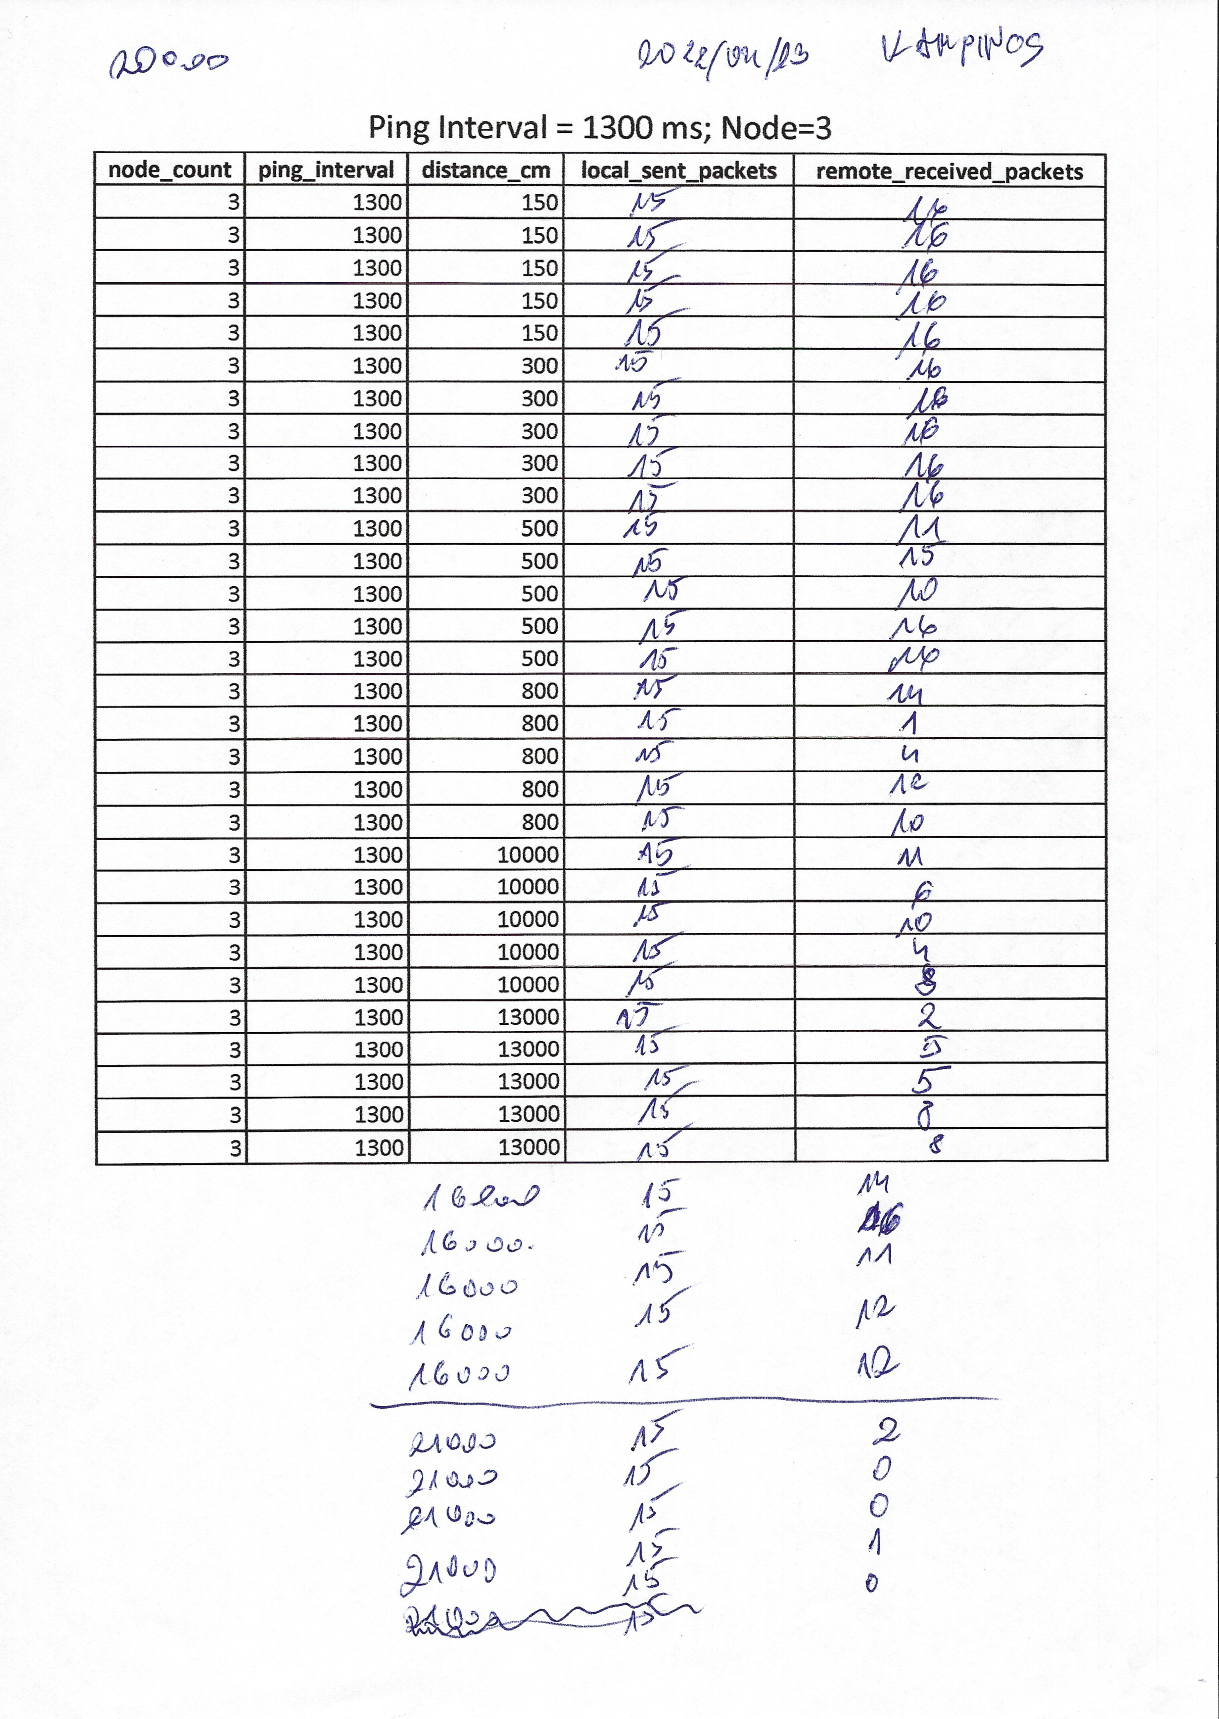 20000 2022/04/23 KAMPINOS
Ping Interval = 1300 ms; Node=3
node_count ping_interval distance_cm local_sent_packets remote_received_packets
3 1300 150 15 16
3 1300 150 15 16
3 1300 150 15 16
3 1300 150 15 16
3 1300 150 15 16
3 1300 300 15 16
3 1300 300 15
3 1300 300 15 16
3 1300 300 15 16
3 1300 300 15 16
3 1300 500 15 11
3 1300 500 15 15
3 1300 500 15 10
3 1300 500 15 16
3 1300 500 15
3 1300 800 15 14
3 1300 800 15 1
3 1300 800 15 4
3 1300 800 15 12
3 1300 800 15 10
3 1300 10000 15 11
3 1300 10000 15 6
3 1300 10000 15 10
3 1300 10000 15 4
3 1300 10000 15
3 1300 13000 15 2
3 1300 13000 15 5
3 1300 13000 15 5
3 1300 13000 15
3 1300 13000 15 8
16000 15 14
16000 15 16
16000 15 11
16000 15 12
16000 15 12
21000 15 2
21000 15 0
21000 15 0
21000 15 1
15 0
21000 15